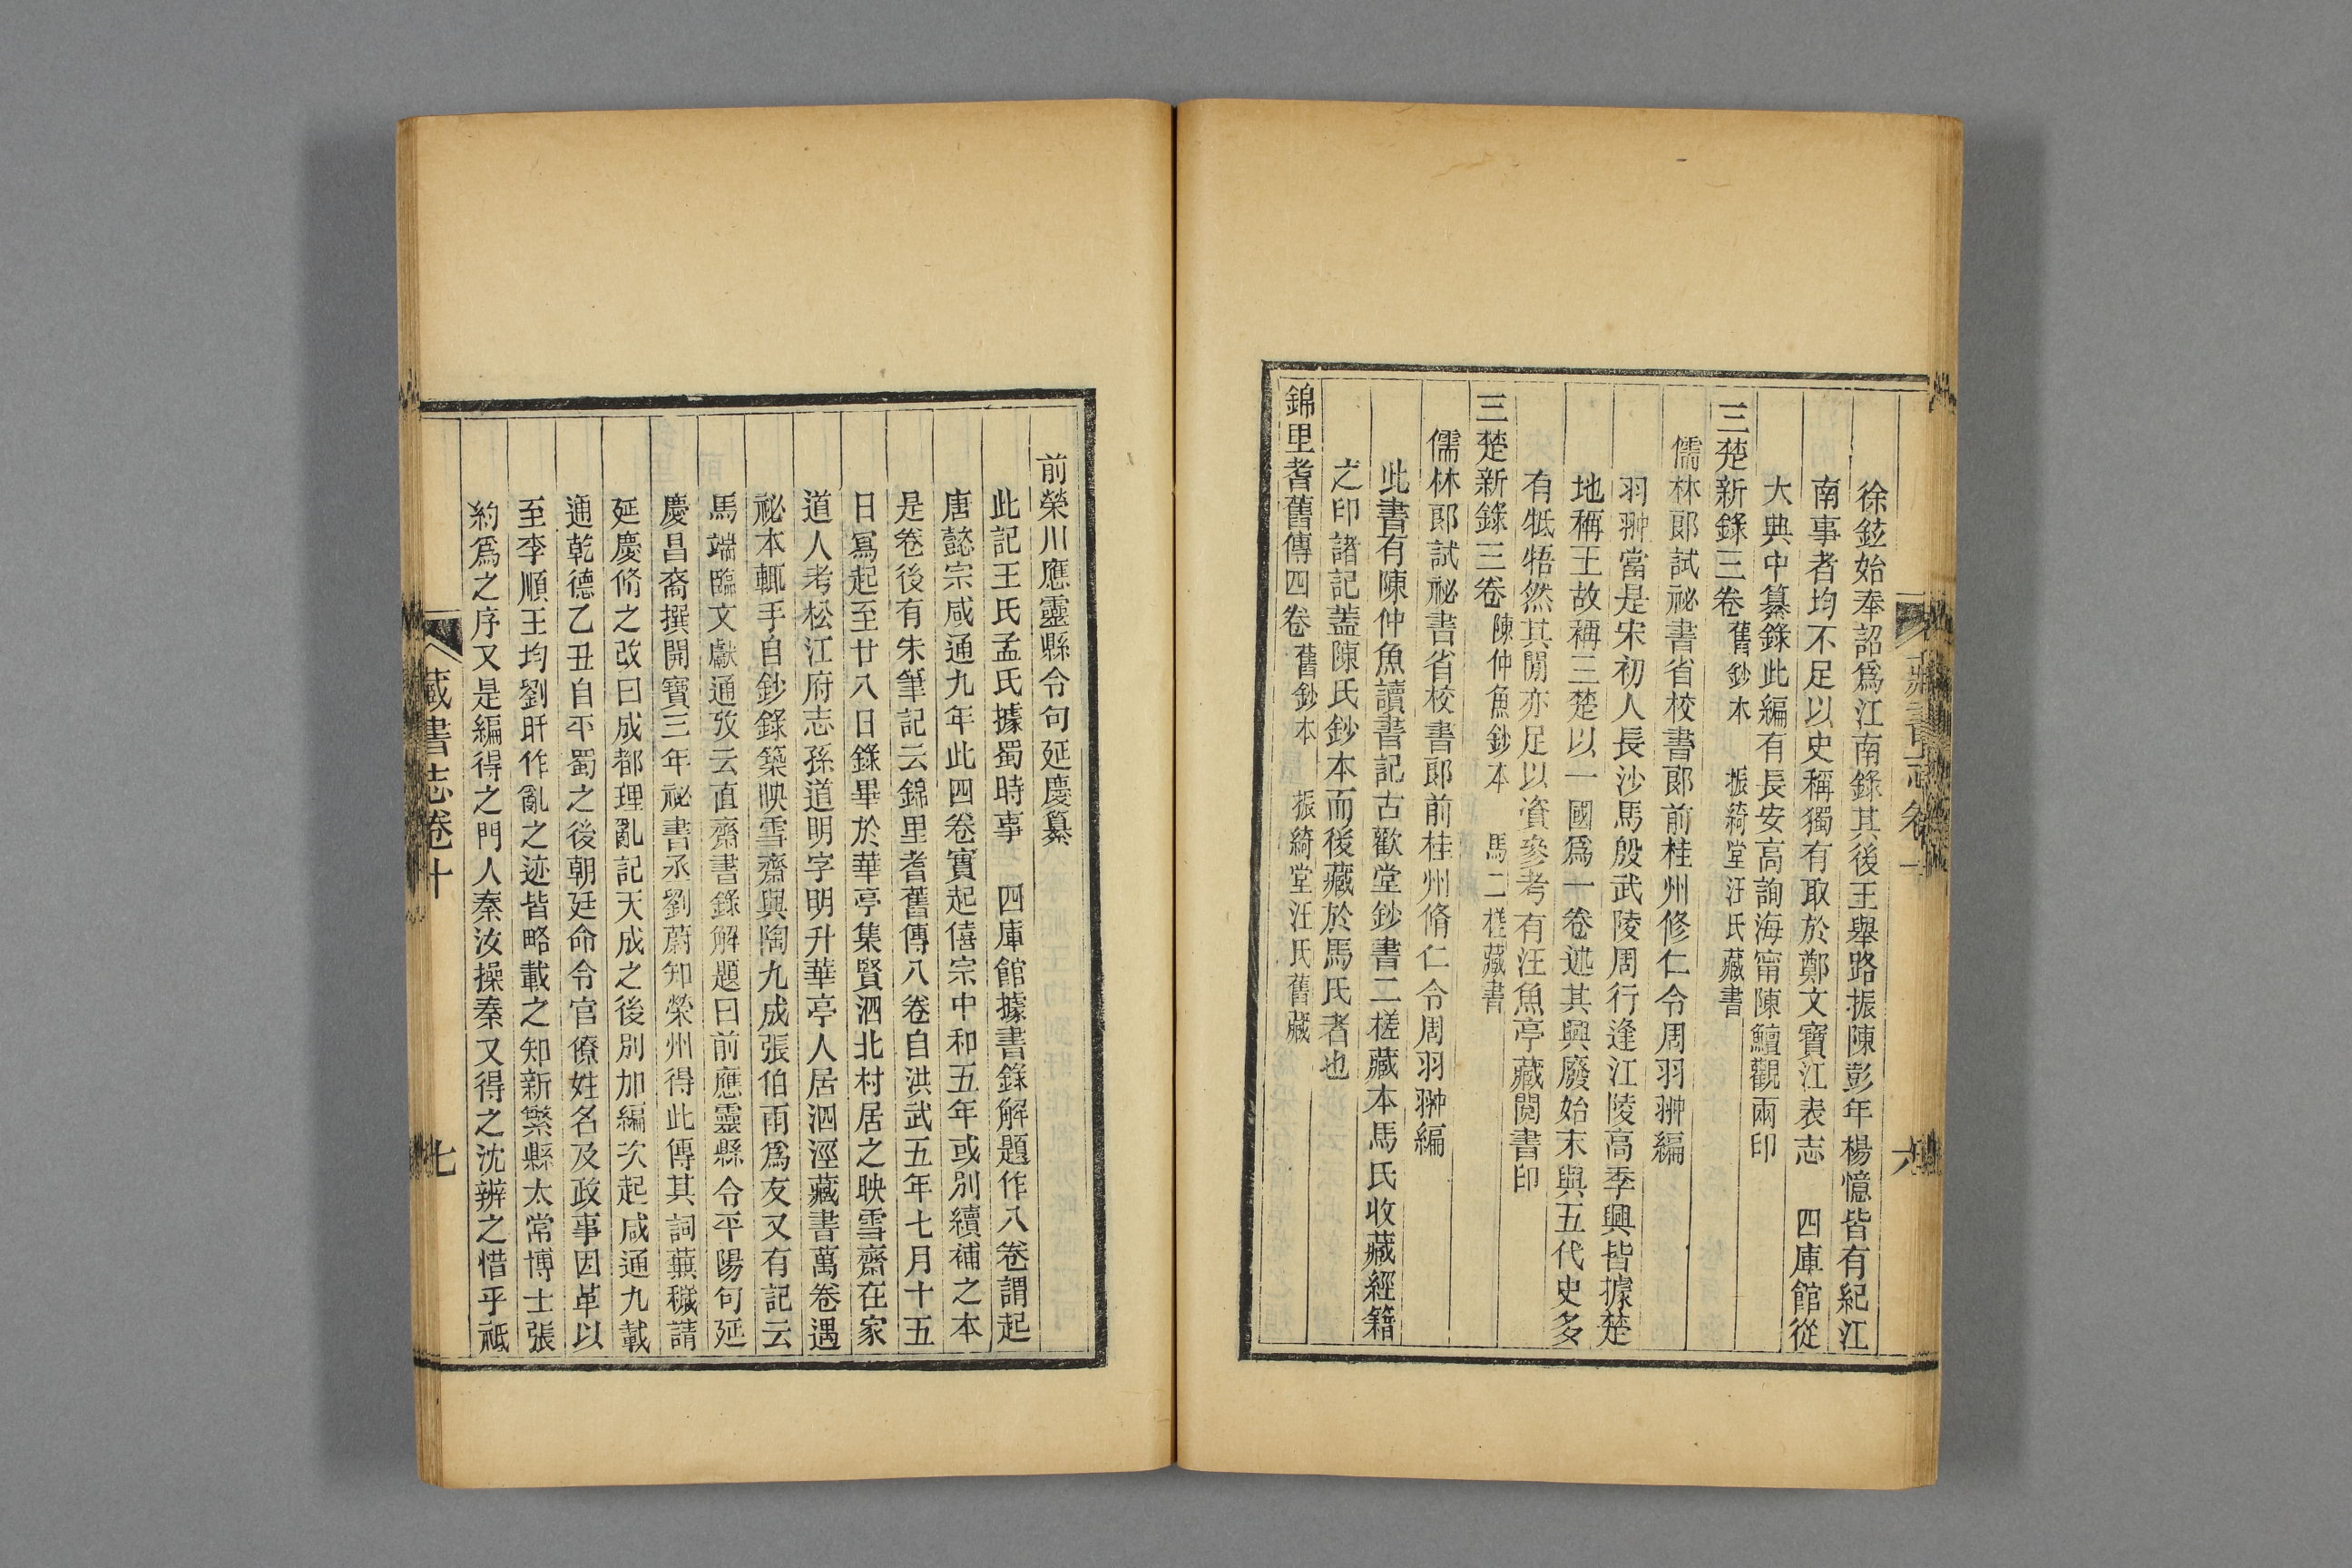 徐鉉始奉詔爲江南錄其後王舉路振陳彭年楊憶皆有紀江
南事者均不足以史稱獨有取於鄭文寶江表志　四庫館從
大典中纂錄此編有長安高詢海甯陳鱣觀兩印
三楚新錄三卷　舊鈔本　振綺堂汪氏藏書
儒林郞試祕書省校書郞前桂州修仁令周羽翀編
羽翀當是宋初人長沙馬殷武陵周行逢江陵高季興皆據楚
地稱王故稱三楚以一國爲一卷述其興廢始末與五代史多
有牴牾然其閒亦足以資參考有汪魚亭藏閱書印
三楚新錄三卷　陳仲魚鈔本　馬二槎藏書
儒林郞試祕書省校書郞前桂州脩仁令周羽翀編
此書有陳仲魚讀書記古歡堂鈔書二槎藏本馬氏收藏經籍
之印諸記蓋陳氏鈔本而後藏於馬氏者也
錦里耆舊傳四卷　舊鈔本　振綺堂汪氏舊藏
藏書志卷十
六
前榮川應靈縣令句延慶纂
此記王氏孟氏據蜀時事　四庫館據書錄解題作八卷謂起
唐懿宗咸通九年此四卷實起僖宗中和五年或別續補之本
是卷後有朱筆記云錦里耆舊傳八卷自洪武五年七月十五
日寫起至廿八日錄畢於華亭集賢泗北村居之映雪齋在家
道人考松江府志孫道明字明升華亭人居泗涇藏書萬卷遇
祕本輒手自鈔錄築映雪齋與陶九成張伯雨爲友又有記云
馬端臨文獻通攷云直齋書錄解題曰前應靈縣令平陽句延
慶昌裔撰開寶三年祕書丞劉蔚知榮州得此傳其詞蕪穢請
延慶脩之改曰成都理亂記天成之後別加編次起咸通九載
通乾德乙丑自平蜀之後朝廷命令官僚姓名及政事因革以
至李順王均劉旰作亂之迹皆略載之知新繁縣太常博士張
約爲之序又是編得之門人秦汝操秦又得之沈辨之惜乎祗
藏書志卷十
七